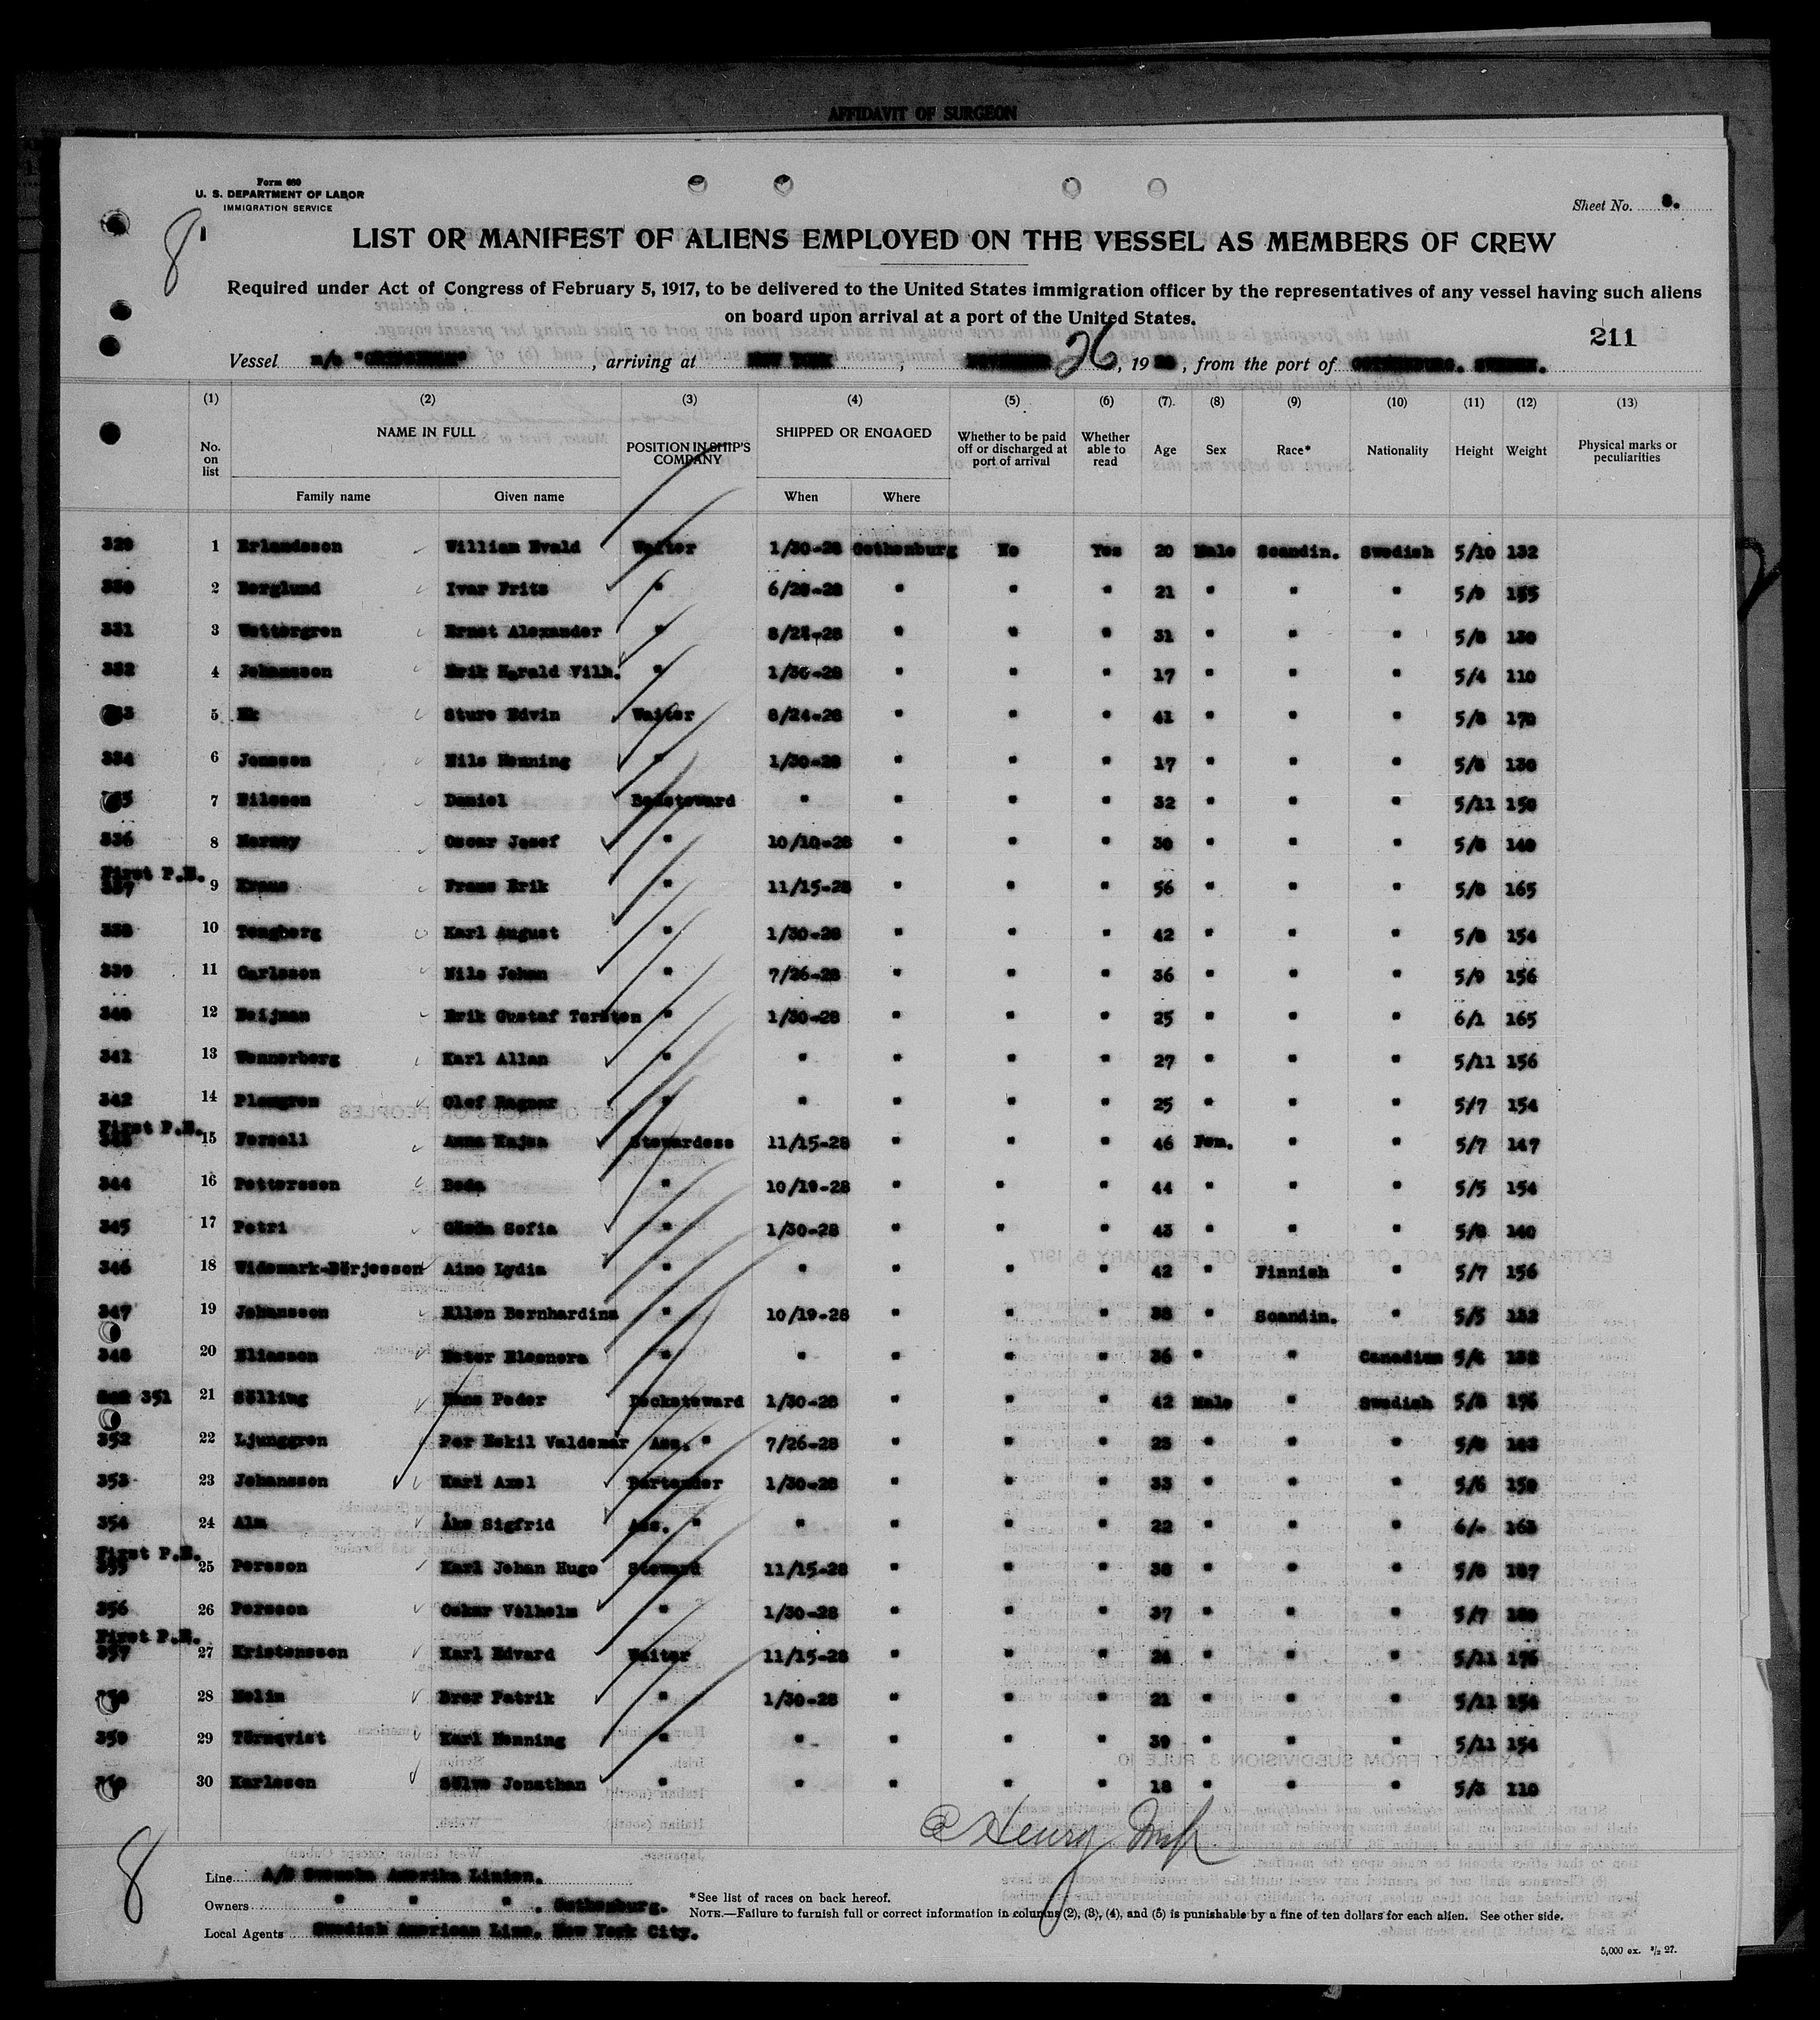 AFFIDAVIT OF SURGEON
Form 680
U. S. DEPARTMENT OF LABOR
IMMIGRATION SERVICE
Sheet No. 8.
8
LIST OR MANIFEST OF ALIENS EMPLOYED ON THE VESSEL AS MEMBERS OF CREW
Required under Act of Congress of February 5, 1917, to be delivered to the United States immigration officer by the representatives of any vessel having such aliens
on board upon arrival at a port of the United States.
211
Vessel m/s "GRIPSHOLM", arriving at NEW YORK, NOVEMBER 26, 1928, from the port of GOTHENBURG. SWEDEN.
(1) (2) (3) (4) (5) (6) (7). (8) (9) (10) (11) (12) (13)
No. on list NAME IN FULL POSITION IN SHIP'S COMPANY SHIPPED OR ENGAGED Whether to be paid off or discharged at port of arrival Whether able to read Age Sex Race* Nationality Height Weight Physical marks or peculiarities
Family name Given name When Where
329 1 Erlandsson William Evald Waiter 1/30-28 Gothenburg No Yes 20 Male Scandin. Swedish 5/10 132
330 2 Berglund Ivar Fritz " 6/28-28 " " " 21 " " " 5/9 155
331 3 Wettergren Ernst Alexander " 8/24-28 " " " 31 " " " 5/8 130
332 4 Johansson Erik Harald Vilh. " 1/30-28 " " " 17 " " " 5/4 110
5 Ek Sture Edvin Waiter 8/24-28 " " " 41 " " " 5/8 170
334 6 Jonsson Nils Henning " 1/30-28 " " " 17 " " " 5/8 130
7 Nilsson Daniel " " " " 32 " " " 5/11 158
336 8 Oscar Josef " 10/10-28 " " " 30 " " " 5/8 140
First P.E.
337 9 Kraus Frans Erik " 11/15-28 " " " 56 " " " 5/8 165
338 10 Tengberg Karl August " 1/30-28 " " " 42 " " " 5/8 154
339 11 Carlsson Nils Johan " 7/26-28 " " " 36 " " " 5/9 156
340 12 Heijman Erik Gustaf Torsten " 1/30-28 " " " 25 " " " 6/1 165
341 13 Wennerberg Karl Allan " " " " " 27 " " " 5/11 156
342 14 Plomgren Olof Ragnar " " " " " 25 " " " 5/7 154
First P.E.
343 15 Forsell Anna Kajsa Stewardess 11/15-28 " " " 46 Fem. " " 5/7 147
344 16 Pettersson Beda " 10/19-28 " " " 44 " " " 5/5 154
345 17 Petri Sofia " 1/30-28 " " " 43 " " " 5/8 140
346 18 Widemark-Börjesson Aino Lydia " " " " " 42 " Finnish " 5/7 156
347 19 Johansson Ellen Bernhardina " 10/19-28 " " " 38 " Scandin. " 5/5 132
348 20 Eliasson Ester Eleonora " " " " " 36 " " Canadian 5/4 132
351 21 Sölling Hans Peder Decksteward 1/30-28 " " " 42 Male " Swedish 5/8 176
352 22 Ljunggren Per Eskil Valdemar Ass. " 7/26-28 " " " 25 " " " 5/8 143
353 23 Johansson Karl Axel Bartender 1/30-28 " " " 33 " " " 5/6 150
354 24 Alm Åke Sigfrid Ass. " " " " " 22 " " " 163
First P.E.
355 25 Persson Karl Johan Hugo Steward 11/15-28 " " " 38 " " " 5/8 187
356 26 Persson Oskar Vilhelm " 1/30-28 " " " 37 " " " 5/7 180
First P.E.
357 27 Kristensson Karl Edvard Waiter 11/15-28 " " " 24 " " " 5/11 176
28 Molin Bror Patrik " 1/30-28 " " " 21 " " " 5/11 154
359 29 Törnqvist Karl Henning " " " " " 39 " " " 5/11 154
360 30 Karlsson Sölve Jonathan " " " " " 18 " " " 5/3 110
Henry Insp
8
Line A/B Svenska Amerika Linien.
Owners " " ". Gothenburg.
*See list of races on back hereof.
NOTE.—Failure to furnish full or correct information in columns (2), (3), (4), and (5) is punishable by a fine of ten dollars for each alien. See other side.
Local Agents Swedish American Line. New York City.
5,000 ex. 3/2 27.